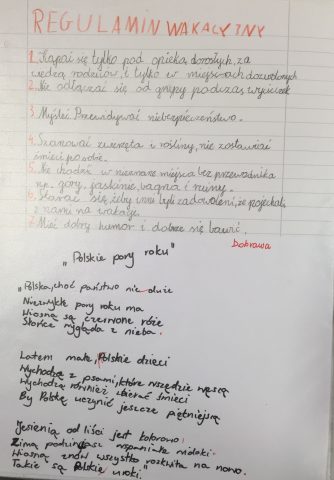 REGULAMIN WAKACYJNY
1. Kąpać się tylko pod opieką dorosłych, za
wiedzą rodziców, i tylko w miejscach dozwolonych
2. Nie odłączać się od grupy podczas wycieczek
3. Myśleć. Przewidywać niebezpieczeństwo.
4. Szanować zwierzęta i rośliny, nie zostawiać
śmieci po sobie.
5. Nie chodzić w nieznane miejsca bez przewodnika
np. góry, jaskinie, bagna i ruiny.
6. Starać się, żeby inni byli zadowoleni, że pojechali
z nami na wakacje.
7. Mieć dobry humor i dobrze się bawić.
Dobrawa
"Polskie pory roku"
Polska, choć państwo nie duże
Niezwykłe pory roku ma
Wiosną są czerwone róże
Słońce wygląda z nieba.
Latem małe, Polskie dzieci
Wychodzą z psami, które wszędzie węszą
Wychodzą również zbierać śmieci
By Polskę uczynić jeszcze piętniejszą
Jesienią od liści jest kolorowo,
Zimą podziwiasz wspaniałe widoki.
Wiosną znów wszystko rozkwita na nowo.
Takie są Polskie uroki.